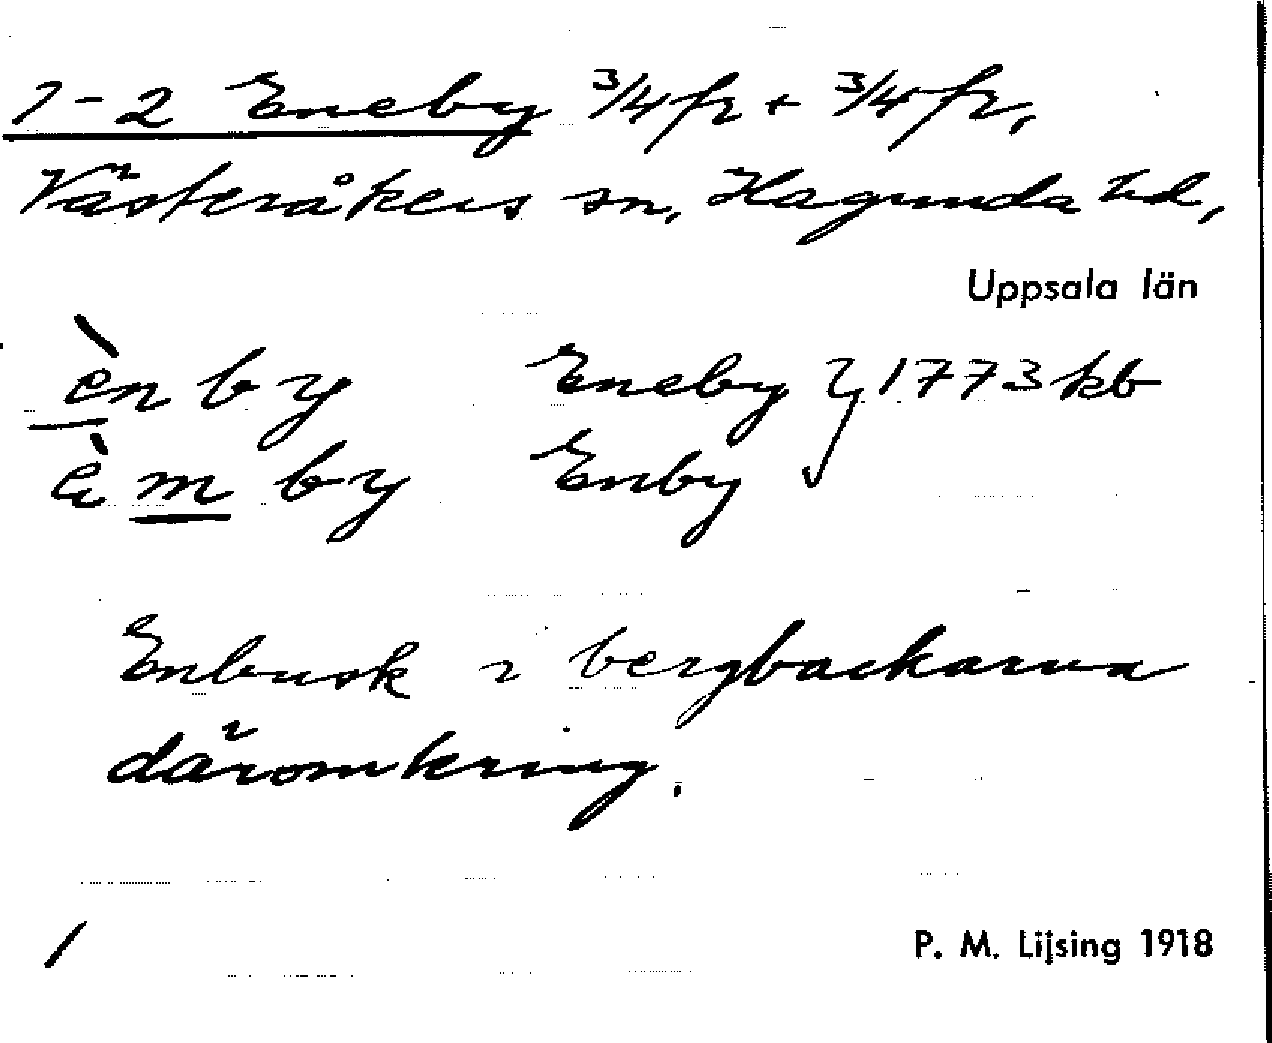 1-2 Eneby 3/4 fr + 3/4 fr,
Västeråkers sn, Hagunda hd,
Uppsala län
ènby Eneby } 1773 kb
èmby Enby
Enbusk i bergbackarna
däromkring.
/
P. M. Lijsing 1918